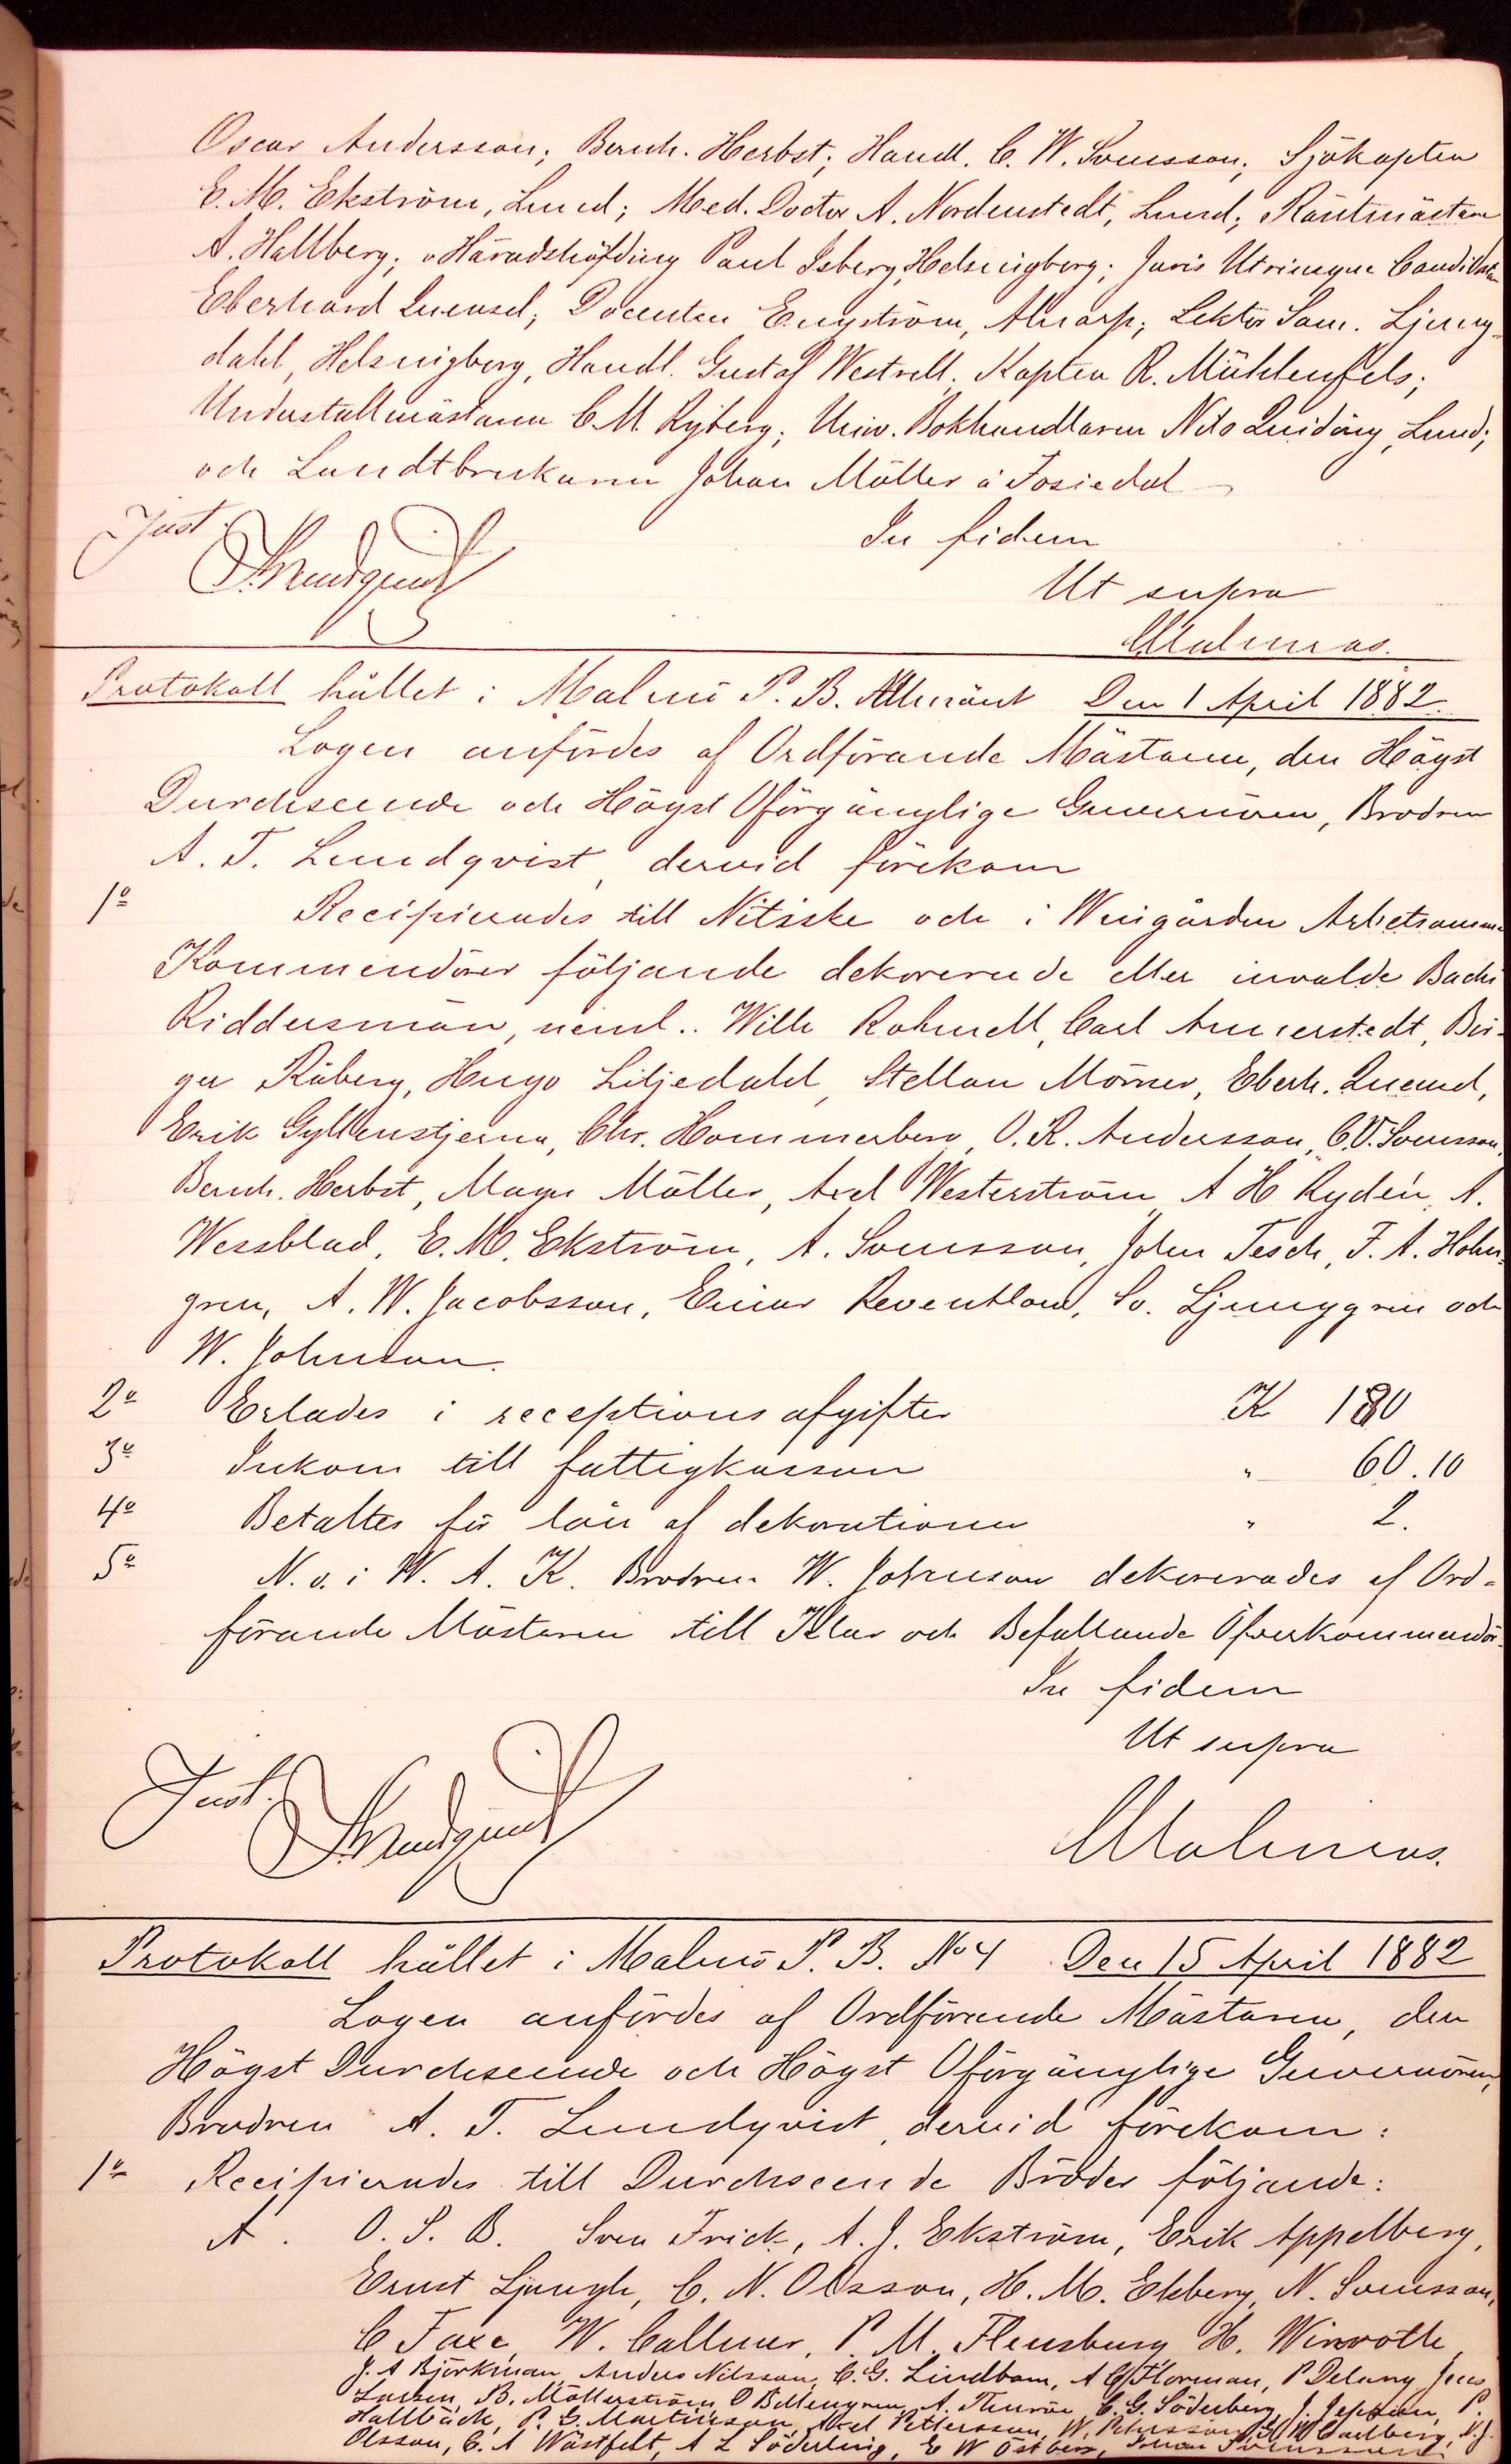 Oscar Andersson; Bernh. Herbst; Handl. C. W. Svensson; Sjökapten
E. M. Ekström, Lund; Med. Doctor A. Nordenstedt, Lund; Räntmästaren
A. Hallberg; v Häradshöfding Paul Isberg, Helsingborg; Juris Utriusque Candidaten
Eberhard Quensel; Docenten Engström, Alnarp; Lektor Sam. Ljung-
dahl, Helsingborg, Handl. Gustaf Westrell; Kapten R. Mühlenfels;
Understallmästaren C. M. Ryberg; Univ. Bokhandlaren Nils Quiding, Lund;
och Landtbrukaren Johan Möller å Fosiedal
Just. In fidem
Ut supra
Malmros.
Protokoll hållet i Malmö P. B. Allmänt Den 1 April 1882.
Logen anfördes af Ordförande Mästaren, den Högst
Durchseende och Högst Oförgänglige Guvernören, Brodren
A. T. Lundqvist, dervid förekom
1o Recipierades till Nitiske och i Wingården Arbetsamme
Kommendörer följande dekorerade eller invalde Bachi
Riddersmän, neml.. Wilh Rohmell, Carl Annerstedt, Bir-
ger Råberg, Hugo Liljedahl, Stellan Mörner, Eberh. Quensel,
Erik Gyllenstjerna, Chr. Hommerberg, O. R. Andersson, C. V. Svensson,
Bernh. Herbst, Magn Möller, Axel Westerström, A H Rydén, A.
Wessblad, E. M. Ekström, A. Svensson, John Tesch, F. A. Holm-
gren, A. W. Jacobsson, Einar Reventlow, Sv. Ljunggren och
W. Johnson.
2o Erlades i receptions afgifter K 180
3o Inkom till fattigkassan " 60.10
4o Betaltes för lån af dekorationer " 2.
5o N. o. i W. A. K. Brodren W. Johnson dekorerades af Ord-
förande Mästaren till Klar och Befallande Öfverkommendör.
In fidem
Ut supra
Just. Malmros.
Protokoll hållet i Malmö P. B. No 4 Den 15 April 1882
Logen anfördes af Ordförande Mästaren, den
Högst Durchseende och Högst Oförgänglige Guvernören,
Brodren A. T. Lundqvist, dervid förekom:
1o Recipierades till Durchseende Bröder följande:
A. O. S. B. Sven Frick, A. J. Ekström, Erik Appelberg,
Ernst Ljungh, C. N. Olsson, H. M. Ekberg, N. Svensson,
C Faxe, W. Callmer, P. M. Flensburg, H. Winroth,
J. A Björkman, Anders Nilsson, C. G. Lindbom, A C Florman, P Delang, Jens
Larsen, B. Möllerström, O Billengren, A. Thurön, C. G. Söderberg, J. Jeppson, P.
Hallbäck, P. G. Martinsson, Axel Pettersson, W. Pehrsson, Carlberg, N. J.
Olsson, C. A Wästfelt, A L Söderling, E W Östberg,